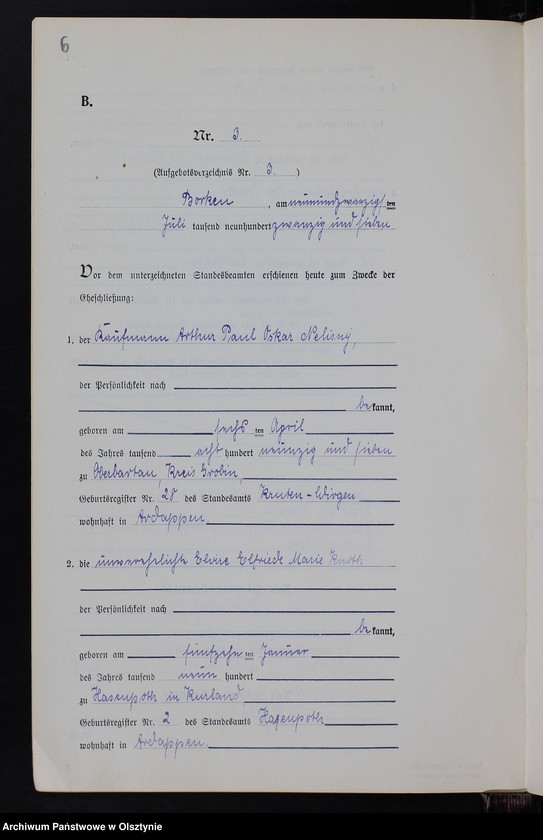 6
B.
Nr. 3.
(Aufgebotsverzeichnis Nr. 3. )
Borken, am neunundzwanzigsten
Juli tausend neunhundert zwanzig und sieben
Vor dem unterzeichneten Standesbeamten erschienen heute zum Zwecke der
Eheschließung:
1. der Kaufmann Arthur Paul Oskar
der Persönlichkeit nach
bekannt,
geboren am sechsten April
des Jahres tausend acht hundert neunzig und sieben
zu Oberbartau, Kreis Grobin,
Geburtsregister Nr. 28 des Standesamts
wohnhaft in Ardappen
2. die unverehelichte Elvire Elfriede Marie Knoth
der Persönlichkeit nach
bekannt,
geboren am fünfzehnten Januar
des Jahres tausend neun hundert
zu Hasenpoth in Kurland
Geburtsregister Nr. 2 des Standesamts Hasenpoth
wohnhaft in Ardappen.
Archiwum Państwowe w Olsztynie